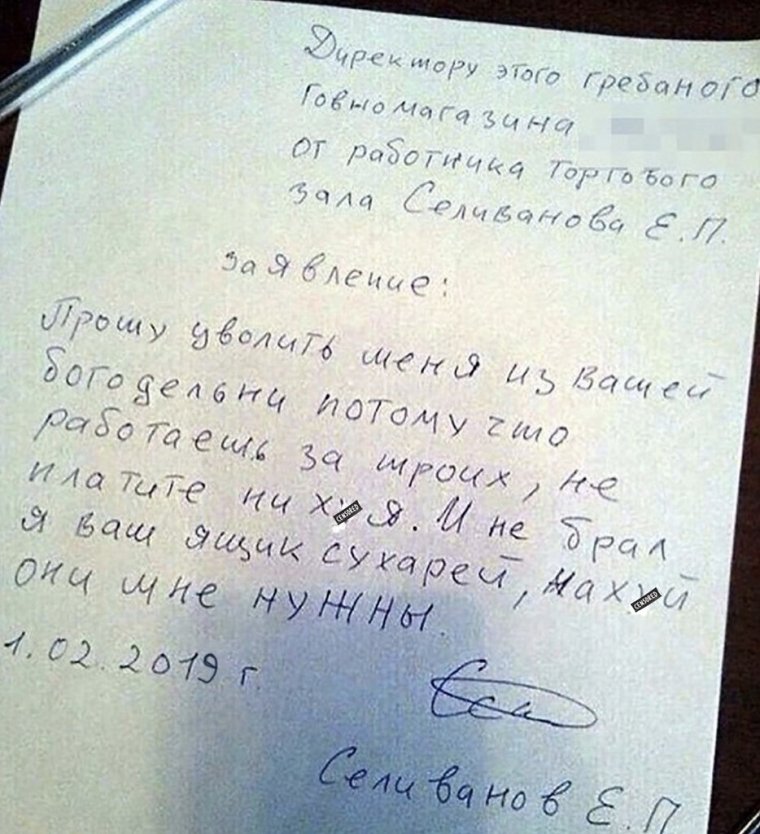 Директору этого гребаного
Говномагазина
от работника торгового
зала Селиванова Е.П.
заявление:
Прошу уволить меня из вашей
богодельни потому что
работаешь за троих, не
платите ни хуя. И не брал
я ваш ящик сухарей, нахуй
они мне нужны.
1.02.2019 г.
Селиванов Е.П
CENSORED
CENSORED